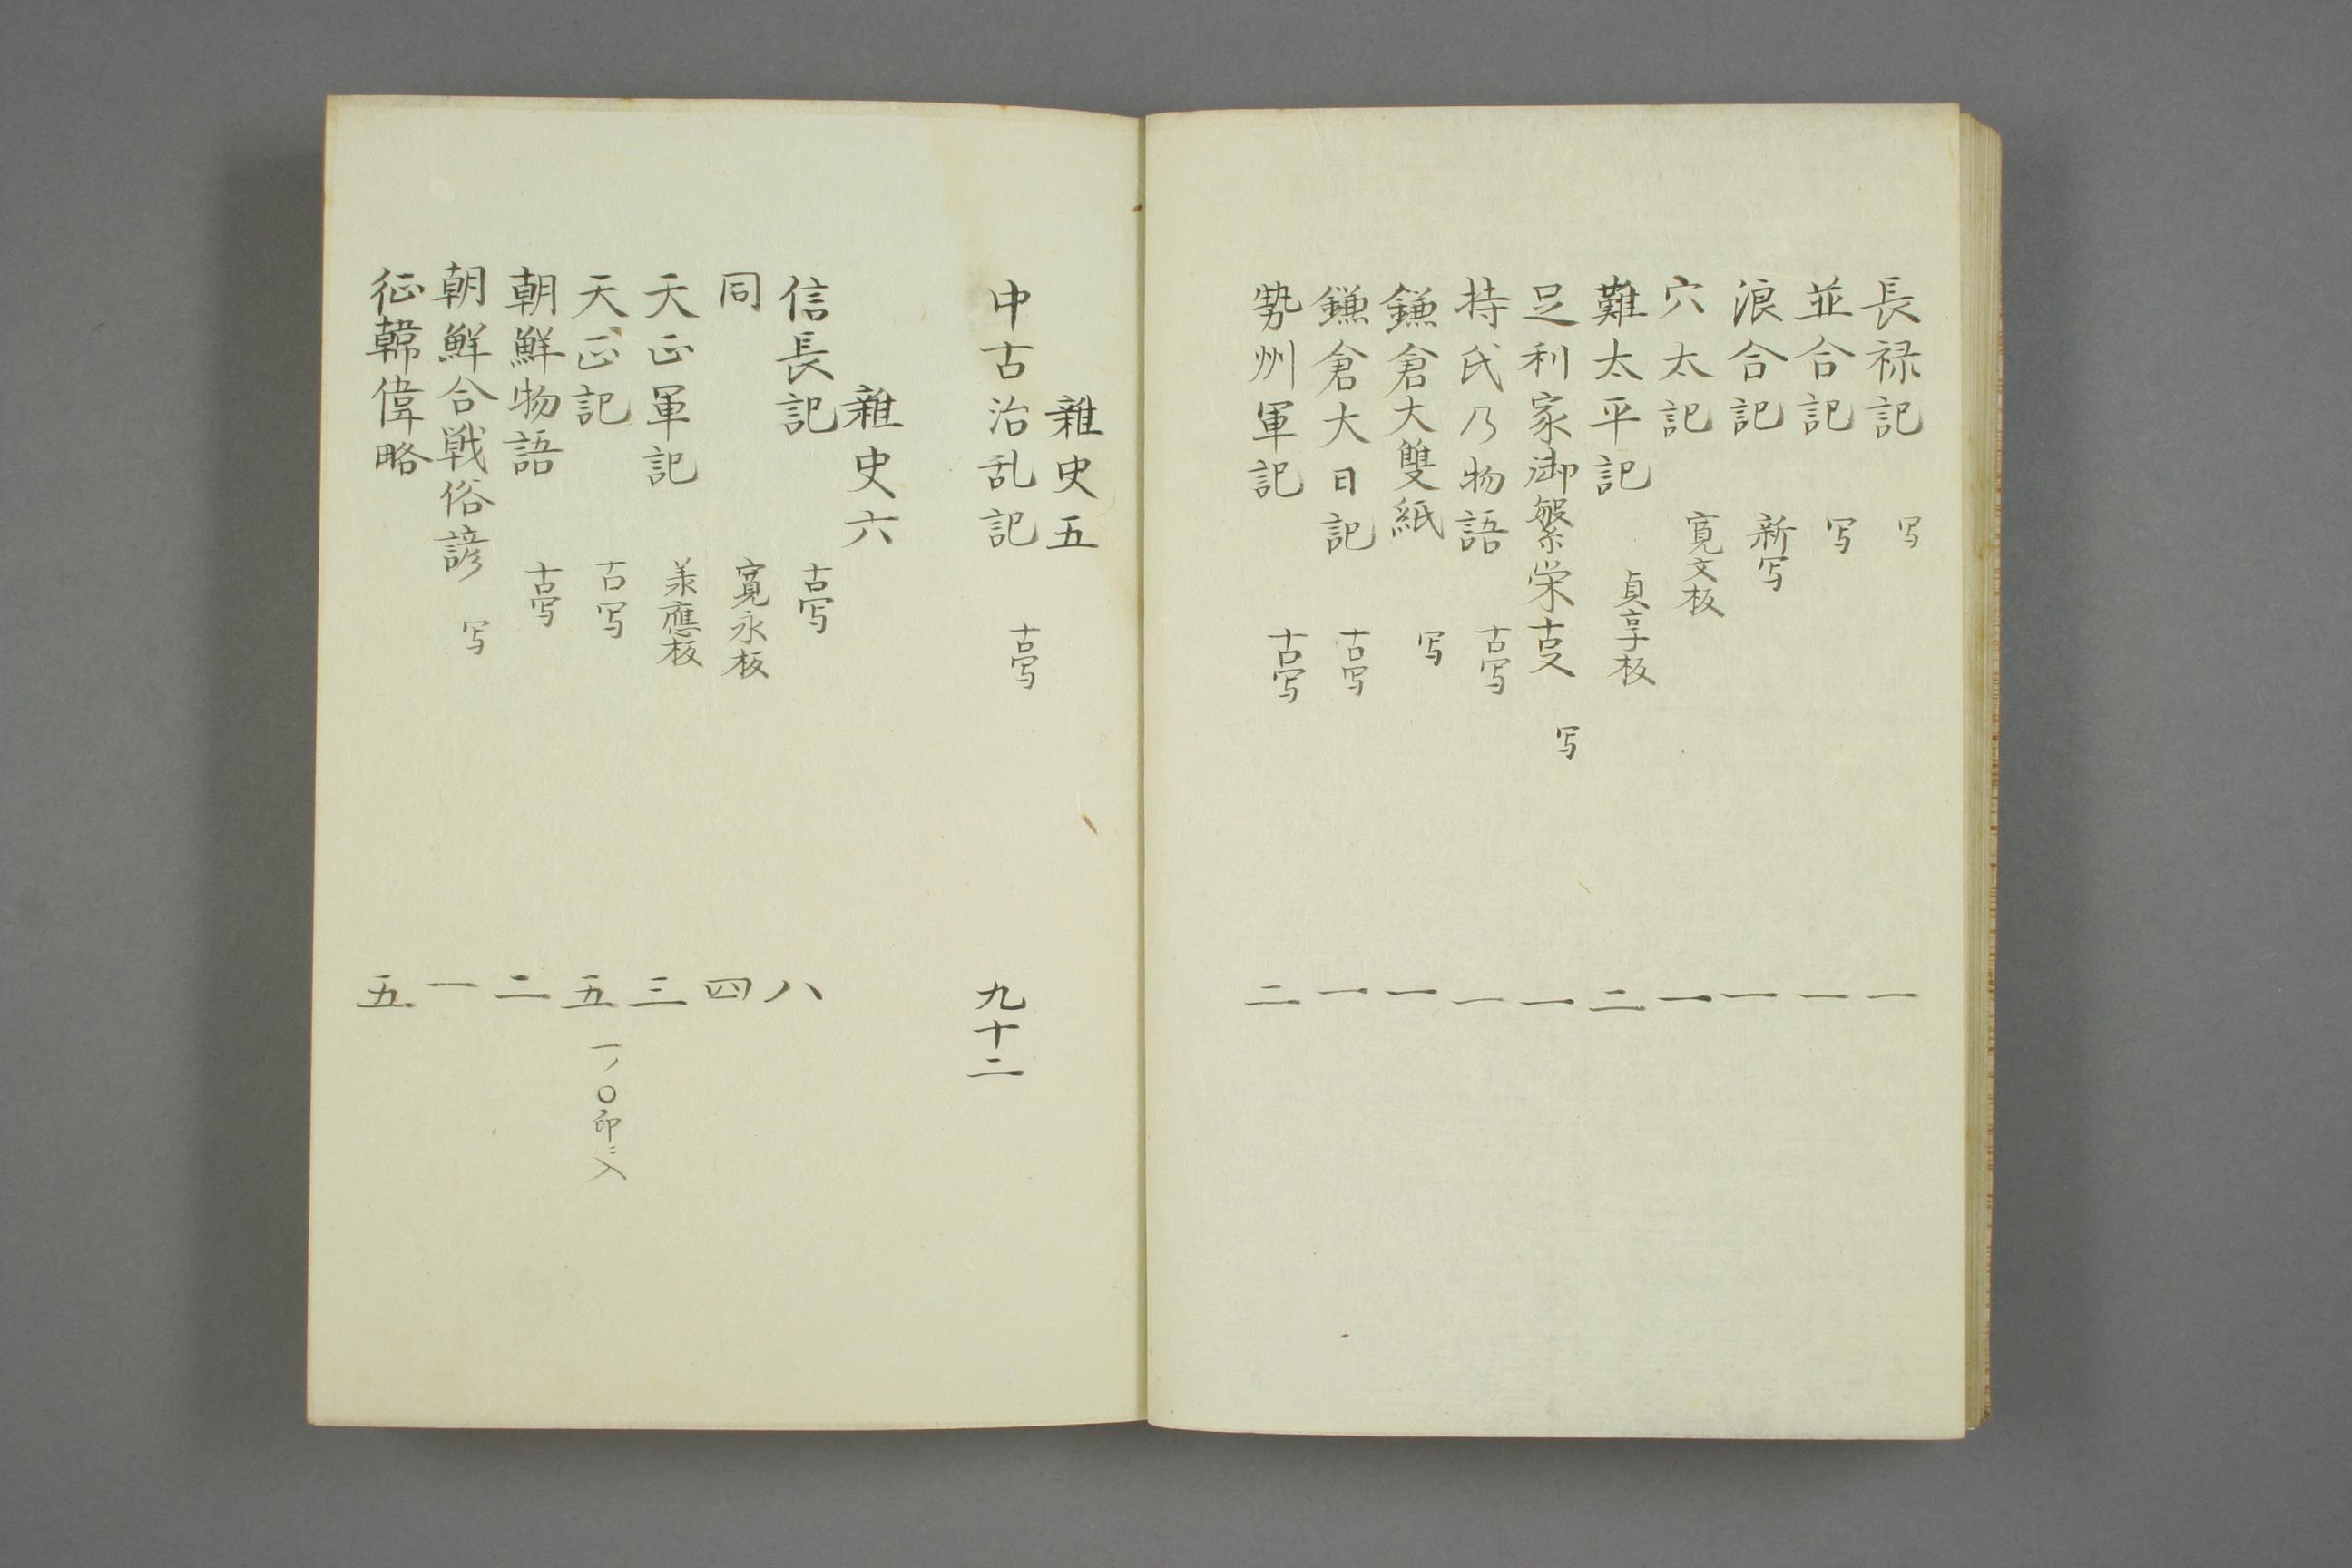 長禄記 写 一
並合記 写 一
浪合記 新写 一
穴太記 寛文板 一
難太平記 貞享板 二
足利家御繁栄古支 写 一
持氏乃物語 古写 一
鎌倉大雙紙 写 一
鎌倉大日記 古写 一
勢州軍記 古写 二
雜史五
中古治乱記 古写 九十二
雜史六
信長記 古写 八
同 寛永板 四
天正軍記 羕應板 三
天正記 古写 五 一ノ〇印ニ入
朝鮮物語 古写 二
朝鮮合戦俗諺 写 一
征韓偉略 五